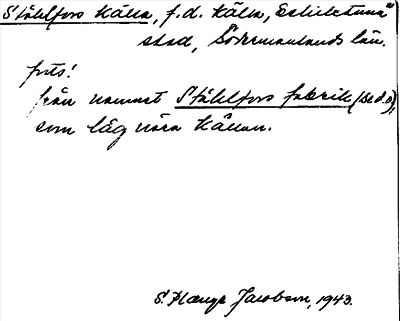 Stålfors Källa, f.d. källa, Eskilstuna
stad, Södermanlands län.
från namnet Stålfors fabrik (se d.o),
som låg nära Källan.
S. Plænge Jacobson, 1943.